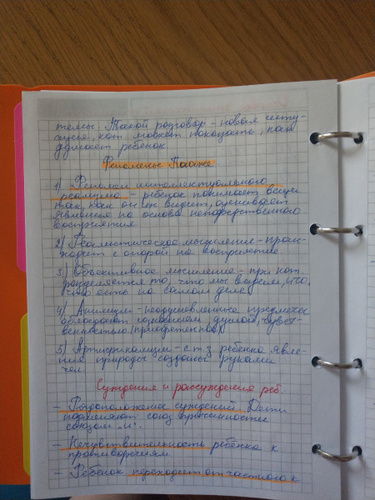 темы. Такой разговор – новая ситу-
ция, кот может показать, как
думает ребенок.
Феномены Пиаже
1) Феномен интеллектуального
реализма – ребенок понимает вещи
так, как он их видит, оценивает
явления на основе непосредственного
восприятия
2) Реалистическое мышление – проис-
ходит с опорой на восприятие
3) Объективное мышление – при кот
разделяется то, что мы видим, и то,
что есть на самом деле
4) Анимизм – неодушевленные предметы
обладают сознанием, душой, чувст-
венностью
5) Артифициализм – с т.з. ребенка явле-
ния природы созданы руками
чел
Суждения и рассуждения реб
– Рядоположение суждений. Дети
союзом и
– Нечувствительность ребенка к
противоречиям
– Ребенок переходит от частного к